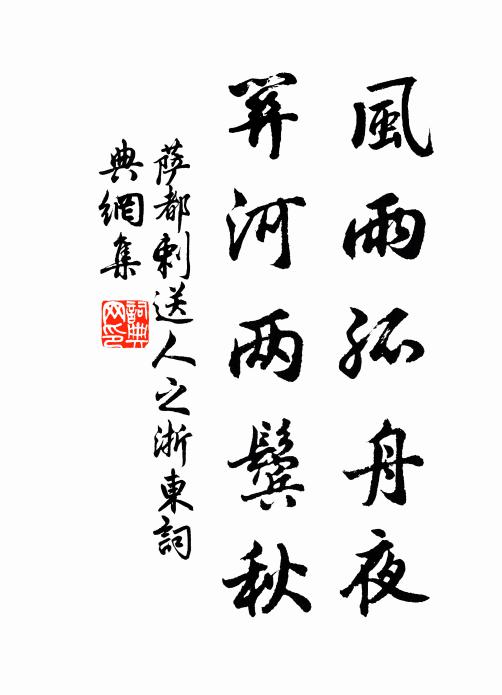 風雨孤舟夜
關河两鬢秋
薩都剌送人之浙東詞
典網集
詞典
网印